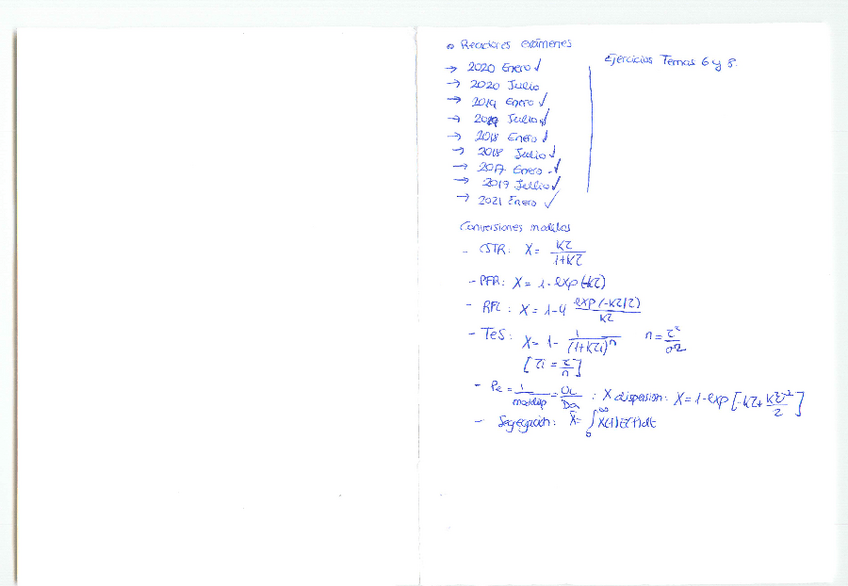 o Reactores exámenes
→ 2020 Enero ✓
→ 2020 Julio
→ 2019 Enero ✓
→ 2019 Julio ✓
→ 2018 Enero ✓
→ 2018 Julio ✓
→ 2017 Enero ✓
→ 2017 Julio ✓
→ 2021 Enero ✓
Ejercicios Temas 6 y 8.
Conversiones modelos
- CSTR: X = kτ / (1+kτ)
- PFR: X = 1 - exp(-kτ)
- RFL: X = 1-4 exp(-kτ/2) / kτ
- TeS: X = 1 - 1 / (1+kτi)^n n = τ² / σ²
[τi = τ/n]
- Pe = 1 / = UL / Da : X dispersion: X = 1 - exp[-kτ +
- Segregación: X̄ = ∫₀^∞ X(t)E(t)dt